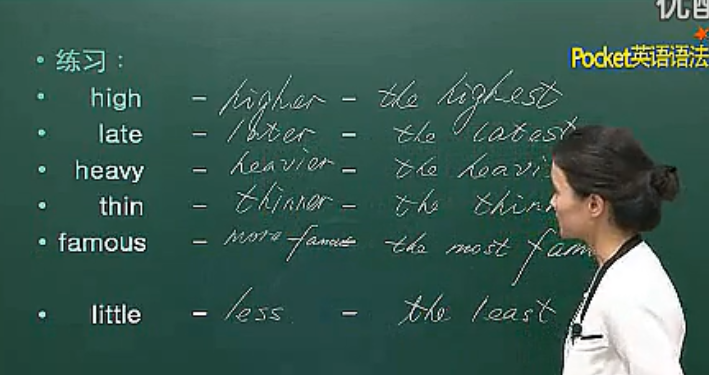 优酷
Pocket英语语法
• 练习：
• high – higher – the highest
• late – later – the latest
• heavy – heavier – the
• thin – thinner – the
• famous – more famous – the most
• little – less – the least